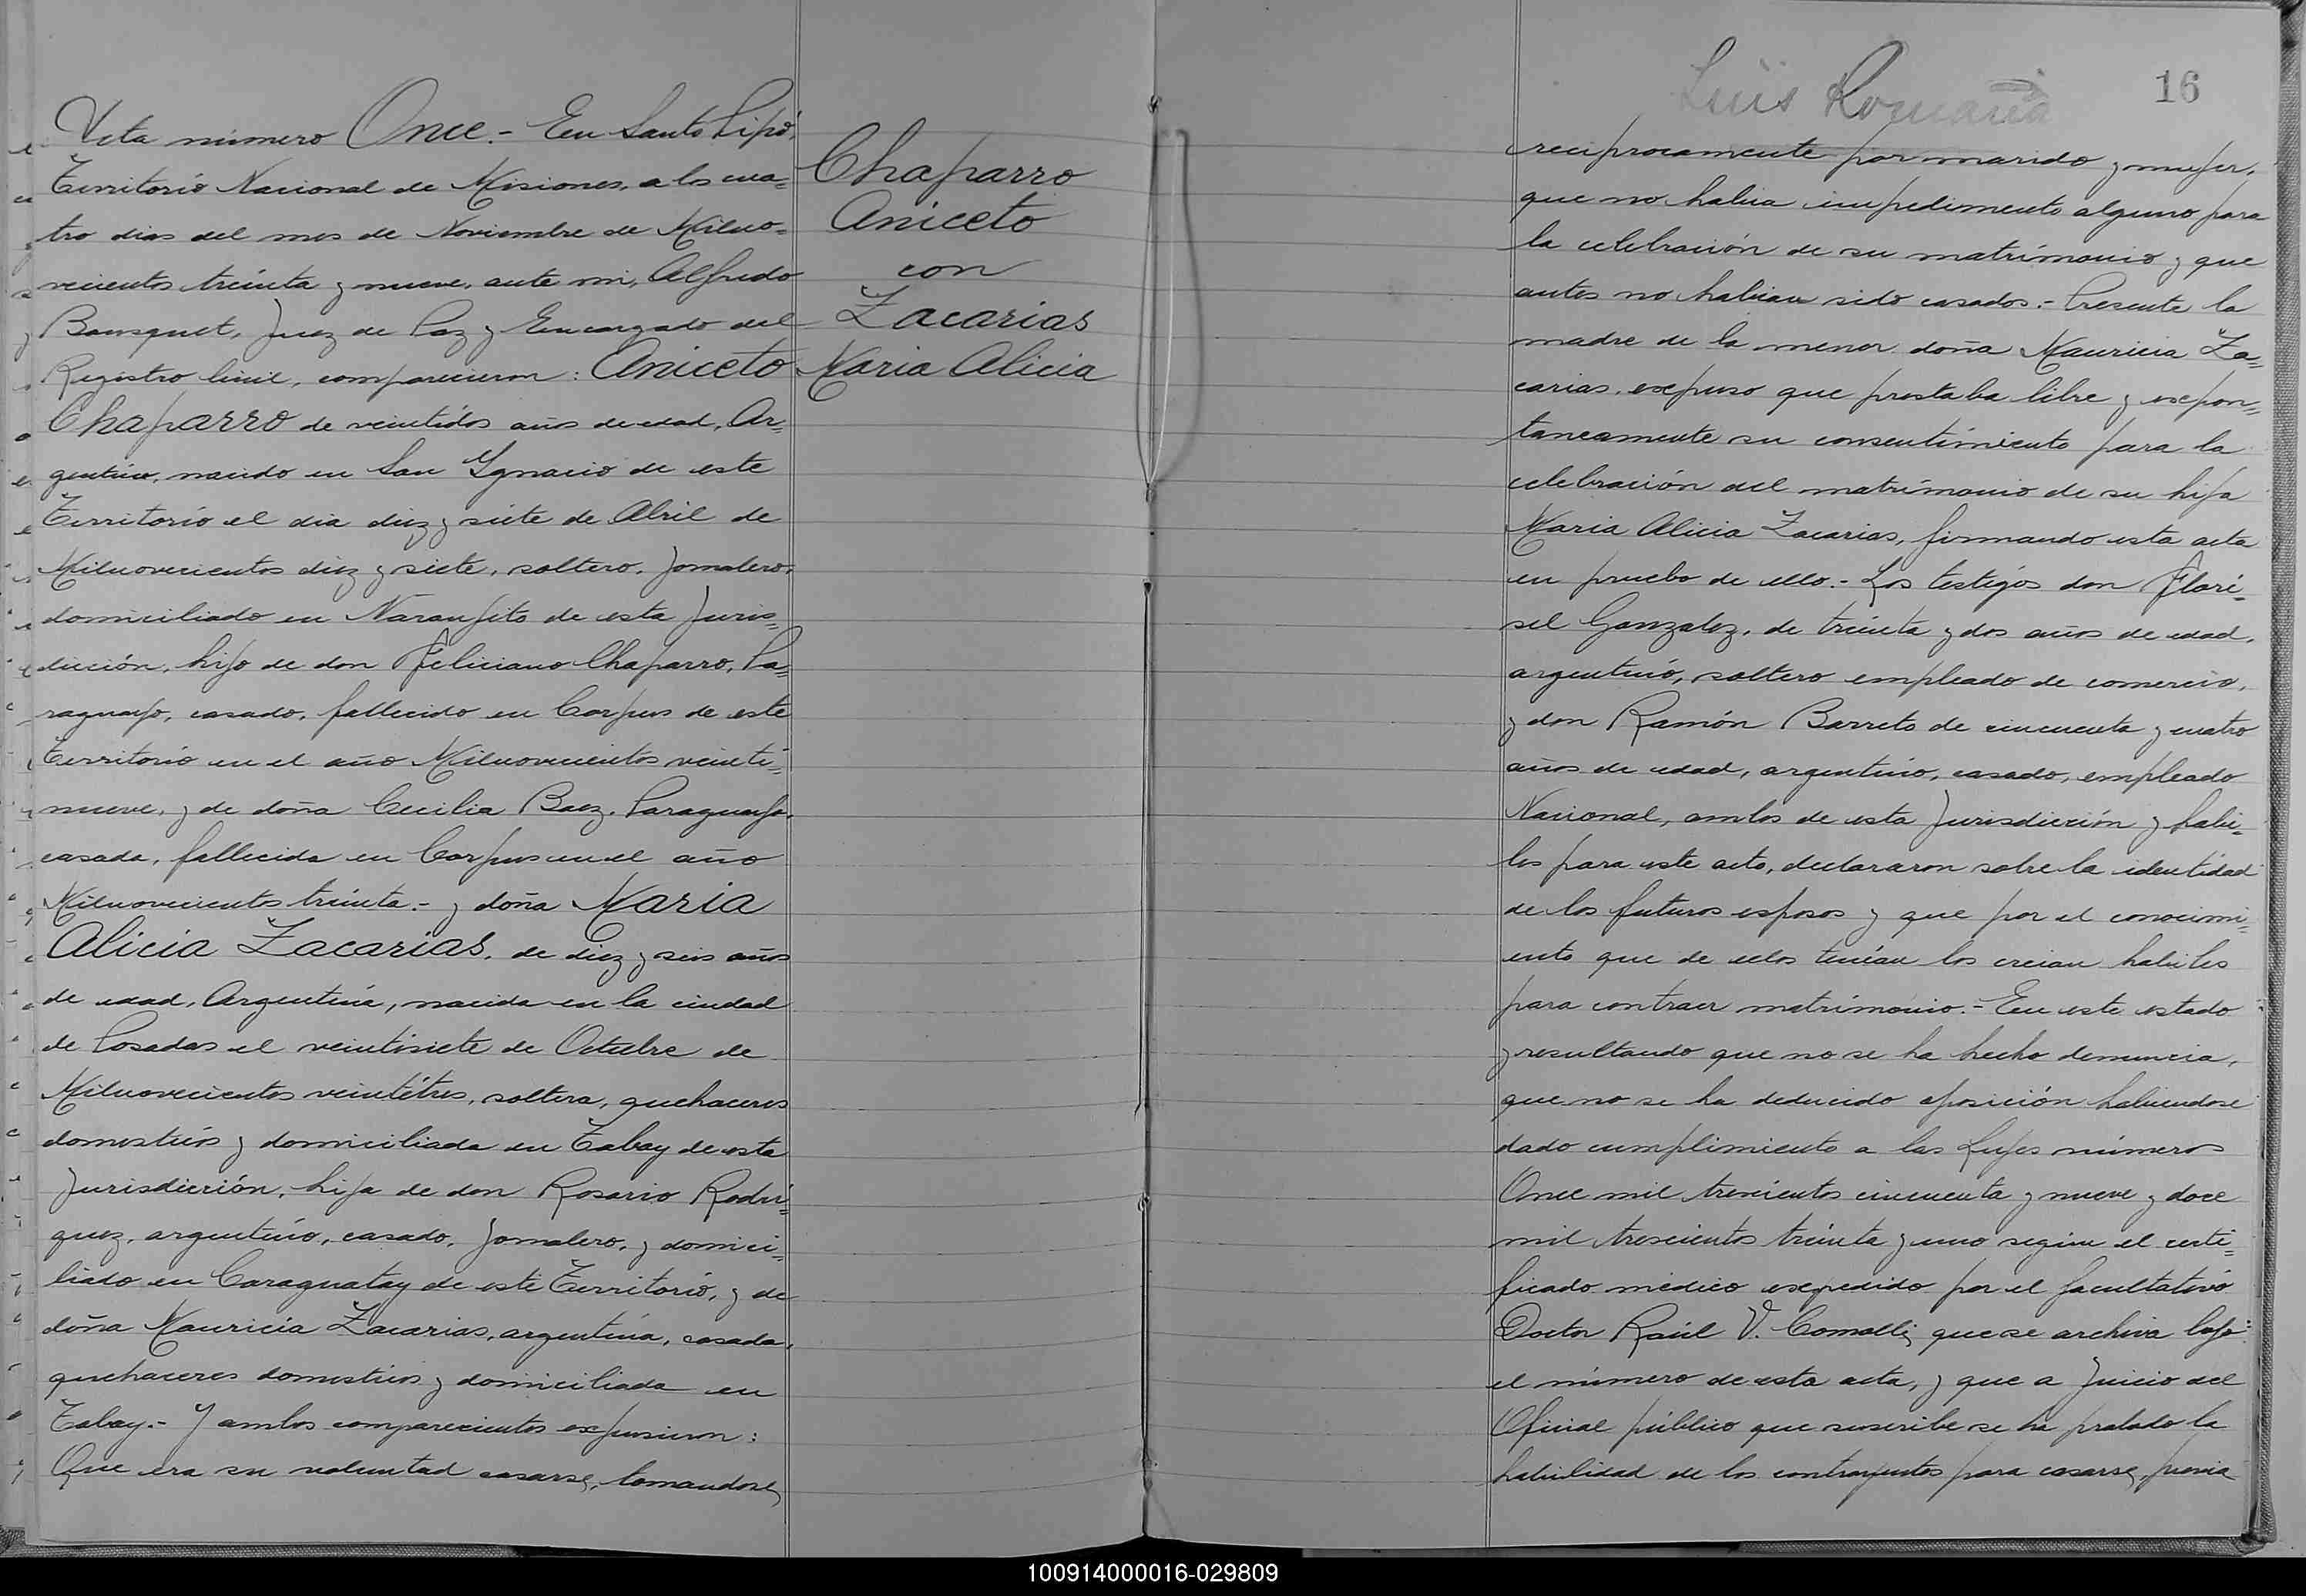 Acta número Once.- En Santo Pipó,
Territorio Nacional de Misiones, a los cua=
tro dias del mes de Noviembre de Milno=
vecientos treinta y nueve, ante mi, Alfredo
Bousquet, Juez de Paz y Encargado del
Registro Civil, comparecieron: Aniceto
Chaparro de veintidós años de edad, Ar=
gentino, nacido en San Ygnacio de este
Territorio el dia diez y siete de Abril de
Milnovecientos diez y siete, soltero, Jornalero,
domiciliado en Naranjito de esta Juris=
dicción, hijo de don Feliciano Chaparro, Pa=
raguayo, casado, fallecido en Corpus de este
Territorio en el año Milnovecientos veinti=
nueve, y de doña Cecilia Baez, Paraguaya,
casada, fallecida en Corpus en el año
Milnovecientos treinta.- y doña Maria
Alicia Zacarias, de diez y seis años
de edad, Argentina, nacida en la ciudad
de Posadas el veintisiete de Octubre de
Milnovecientos veintitres, soltera, quehaceres
domesticos y domiciliada en Tabay de esta
Jurisdicción, hija de don Rosario Rodri=
guez, argentino, casado, Jornalero, y domici=
liado en Caraguatay de este Territorio, y de
doña Mauricia Zacarias, argentina, casada,
quehaceres domesticos y domiciliada en
Tabay.- Y ambos comparecientes expusieron:
Que era su voluntad casarse, tomandose
Chaparro
Aniceto
con
Zacarias
Maria Alicia
Luis Romaña
16
reciprocamente por marido y mujer,
que no habia impedimento alguno para
la celebración de su matrimonio y que
antes no habian sido casados.- Presente la
madre de la menor doña Mauricia Za=
carias, expuso que prestaba libre y expon=
taneamente su consentimiento para la
celebración del matrimonio de su hija
Maria Alicia Zacarias, firmando esta acta
en prueba de ello.- Los testigos don Flori=
sel Gonzalez, de treinta y dos años de edad,
argentino, soltero empleado de comercio,
y don Ramón Barreto de cincuenta y cuatro
años de edad, argentino, casado, empleado
Nacional, ambos de esta Jurisdicción y habi=
les para este acto, declararon sobre la identidad
de los futuros esposos y que por el conocimi=
ento que de ellos tenían los creian habiles
para contraer matrimonio.- En este estado
y resultando que no se ha hecho denuncia,
que no se ha deducido oposición habiendose
dado cumplimiento a las Leyes números
Once mil trescientos cincuenta y nueve y doce
mil trescientos treinta y uno según el certi=
ficado médico expedido por el facultativo
Doctor Raúl V. Comolli, que se archiva bajo
el número de esta acta, y que a Juicio del
Oficial público que suscribe se ha probado la
habilidad de los contrayentes para casarse, previa
100914000016-029809